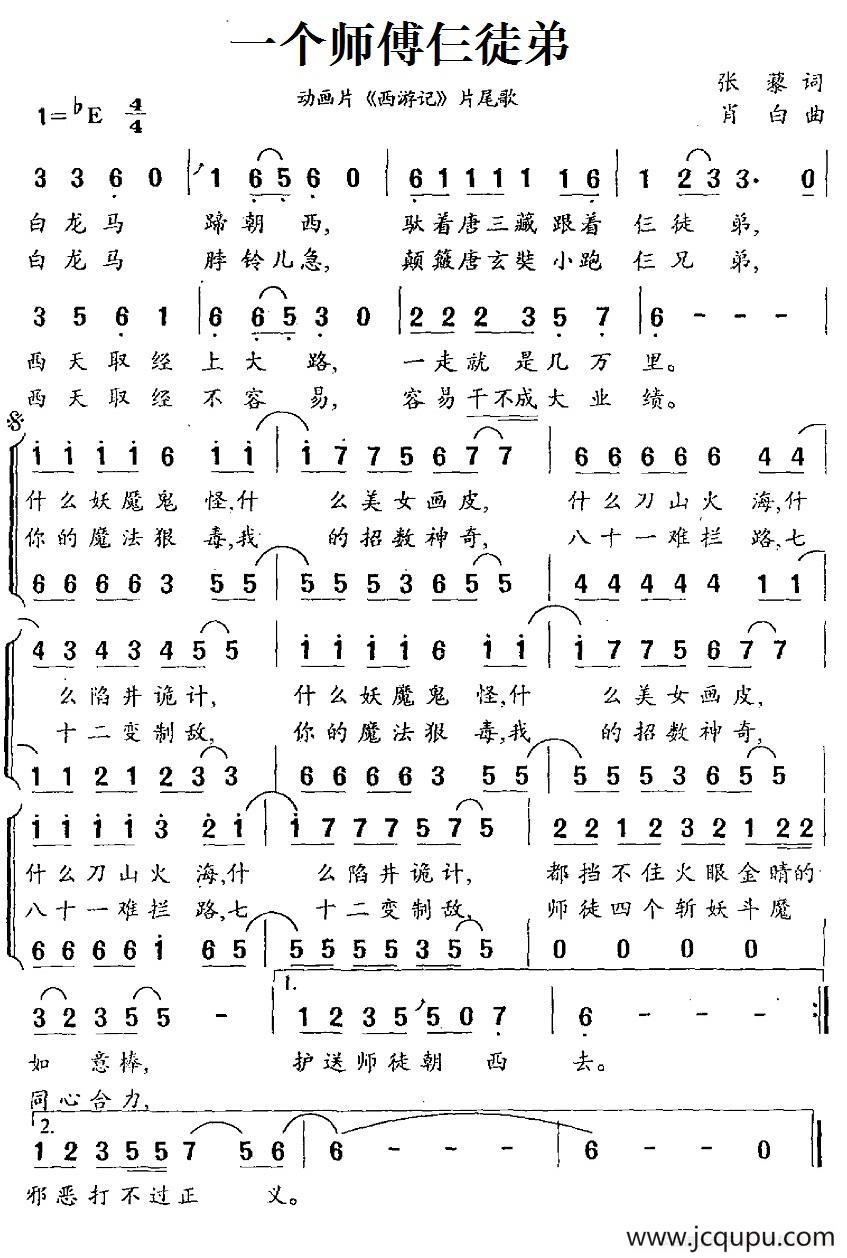 一个师傅仨徒弟
动画片《西游记》片尾歌
张藜词
肖白曲
1=♭E 4/4
3 3 6 0 | 1 6 5 6 0 | 6 1 1 1 1 1 6 | 1 2 3 3· 0
白龙马 蹄朝西, 驮着唐三藏跟着仨徒弟,
白龙马 脖铃儿急, 颠簸唐玄奘小跑仨兄弟,
3 5 6 1 | 6 6 5 3 0 | 2 2 2 3 5 7 | 6 - - -
西天取经上大路, 一走就是几万里。
西天取经不容易, 容易干不成大业绩。
1 1 1 1 6 1 1 | 1 7 7 5 6 7 7 | 6 6 6 6 6 4 4
什么妖魔鬼怪,什么美女画皮, 什么刀山火海,什
你的魔法狠毒,我的招数神奇, 八十一难拦路,七
6 6 6 6 3 5 5 | 5 5 5 3 6 5 5 | 4 4 4 4 4 1 1
4 3 4 3 4 5 5 | 1 1 1 1 6 1 1 | 1 7 7 5 6 7 7
么陷井诡计, 什么妖魔鬼怪,什么美女画皮,
十二变制敌, 你的魔法狠毒,我的招数神奇,
1 1 2 1 2 3 3 | 6 6 6 6 3 5 5 | 5 5 5 3 6 5 5
1 1 1 1 3 2 1 | 1 7 7 7 5 7 5 | 2 2 1 2 3 2 1 2 2
什么刀山火海,什么陷井诡计, 都挡不住火眼金晴的
八十一难拦路,七十二变制敌, 师徒四个斩妖斗魔
6 6 6 6 1 6 5 | 5 5 5 5 3 5 5 | 0 0 0 0
1.
3 2 3 5 5 - | 1 2 3 5 5 0 7 | 6 - - - :‖
如意棒, 护送师徒朝西去。
同心合力,
2.
1 2 3 5 5 7 5 6 | 6 - - - | 6 - - 0 ‖
邪恶打不过正义。
www.jcqupu.com